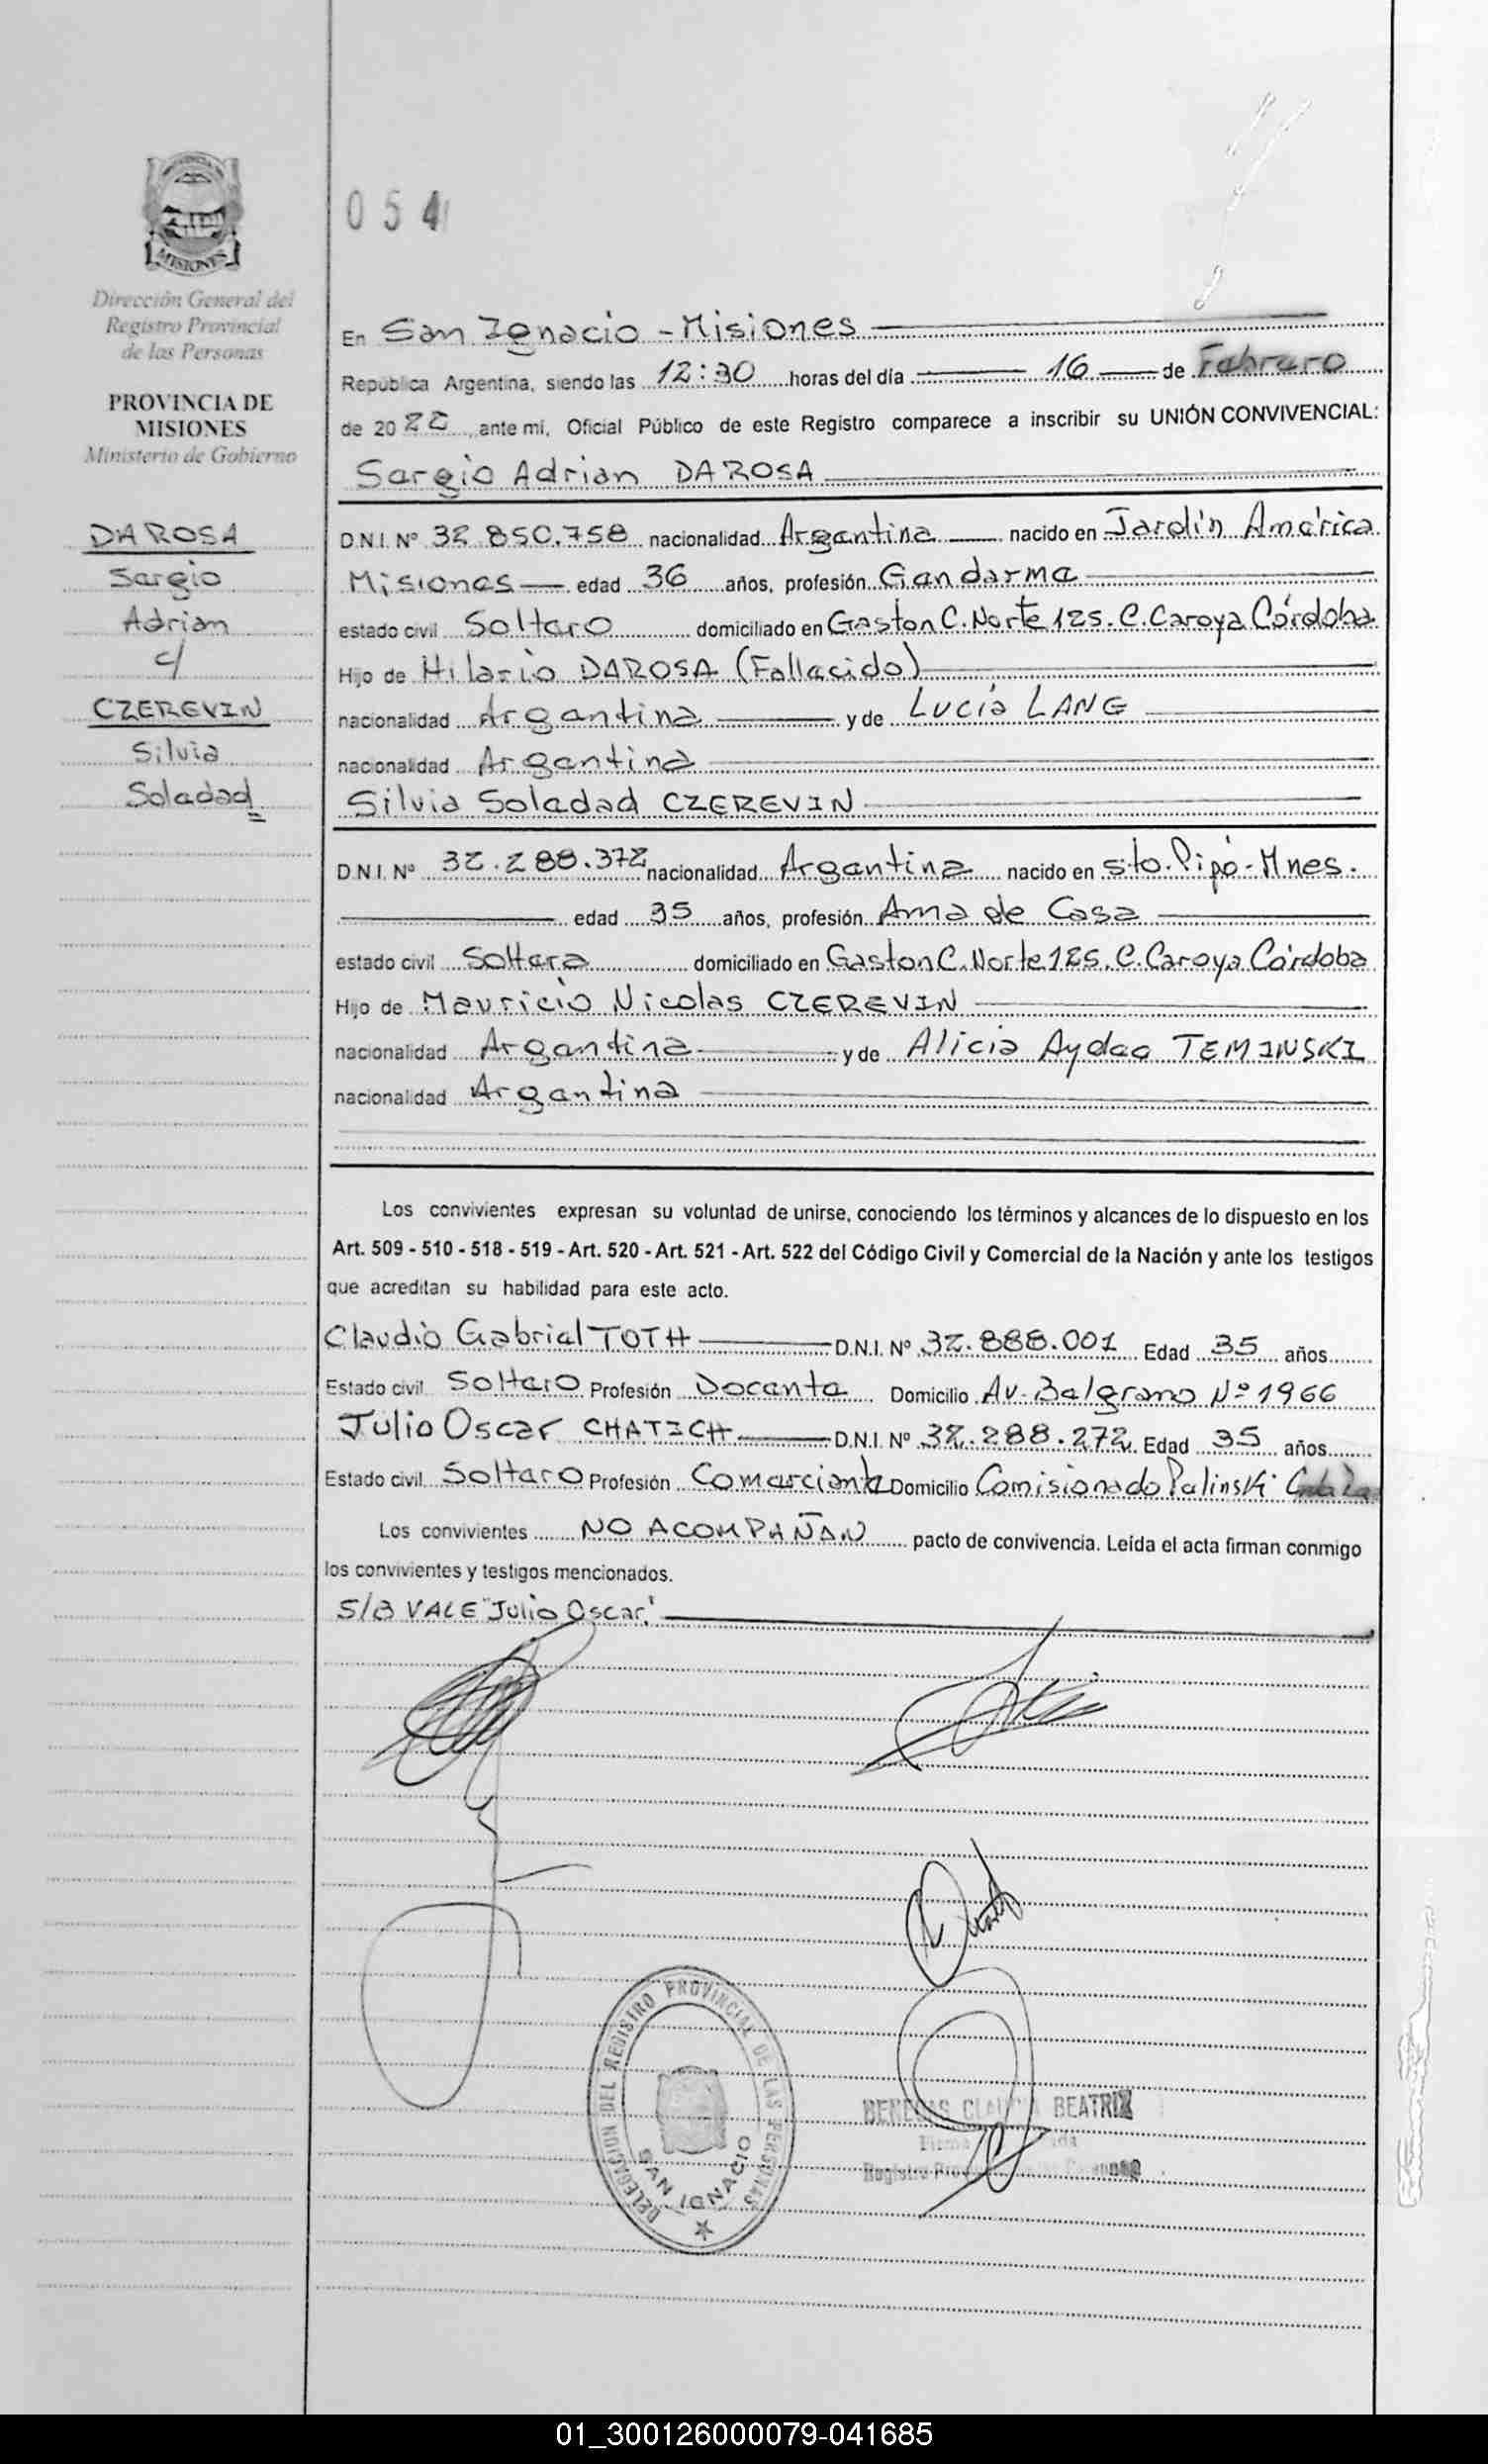 PROVINCIA DE
MISIONES
Dirección General del
Registro Provincial
de las Personas
PROVINCIA DE
MISIONES
Ministerio de Gobierno
DAROSA
Sergio
Adrian
c/
CZEREVIN
Silvia
Soledad
054
En San Ignacio - Misiones
República Argentina, siendo las 12:30 horas del día 16 de Febrero
de 2022, ante mí, Oficial Público de este Registro comparece a inscribir su UNIÓN CONVIVENCIAL:
Sergio Adrian DAROSA
D.N.I. Nº 32 850.758 nacionalidad Argentina nacido en Jardín América
Misiones edad 36 años, profesión Gendarme
estado civil Soltero domiciliado en Gaston C. Norte 125. C. Caroya Córdoba
Hijo de Hilario DAROSA (Fallecido)
nacionalidad Argentina y de Lucía LANG
nacionalidad Argentina
Silvia Soledad CZEREVIN
D.N.I. Nº 32.288.372 nacionalidad Argentina nacido en Sto. Pipó - Mnes.
edad 35 años, profesión Ama de Casa
estado civil Soltera domiciliado en Gaston C. Norte 125. C. Caroya Córdoba
Hijo de Mauricio Nicolas CZEREVIN
nacionalidad Argentina y de Alicia Aydee TEMINSKI
nacionalidad Argentina
Los convivientes expresan su voluntad de unirse, conociendo los términos y alcances de lo dispuesto en los
Art. 509 - 510 - 518 - 519 - Art. 520 - Art. 521 - Art. 522 del Código Civil y Comercial de la Nación y ante los testigos
que acreditan su habilidad para este acto.
Claudio Gabriel TOTH D.N.I. Nº 32.888.001 Edad 35 años
Estado civil Soltero Profesión Docente Domicilio Av. Belgrano Nº 1966
Julio Oscar CHATICH D.N.I. Nº 32.288.272 Edad 35 años
Estado civil Soltero Profesión Comerciante Domicilio Comisionado Palinski
Los convivientes NO ACOMPAÑAN pacto de convivencia. Leída el acta firman conmigo
los convivientes y testigos mencionados.
S/B VALE "Julio Oscar."
DELEGACION DEL REGISTRO PROVINCIAL DE LAS PERSONAS
SAN IGNACIO
BEATRIX
01_300126000079-041685